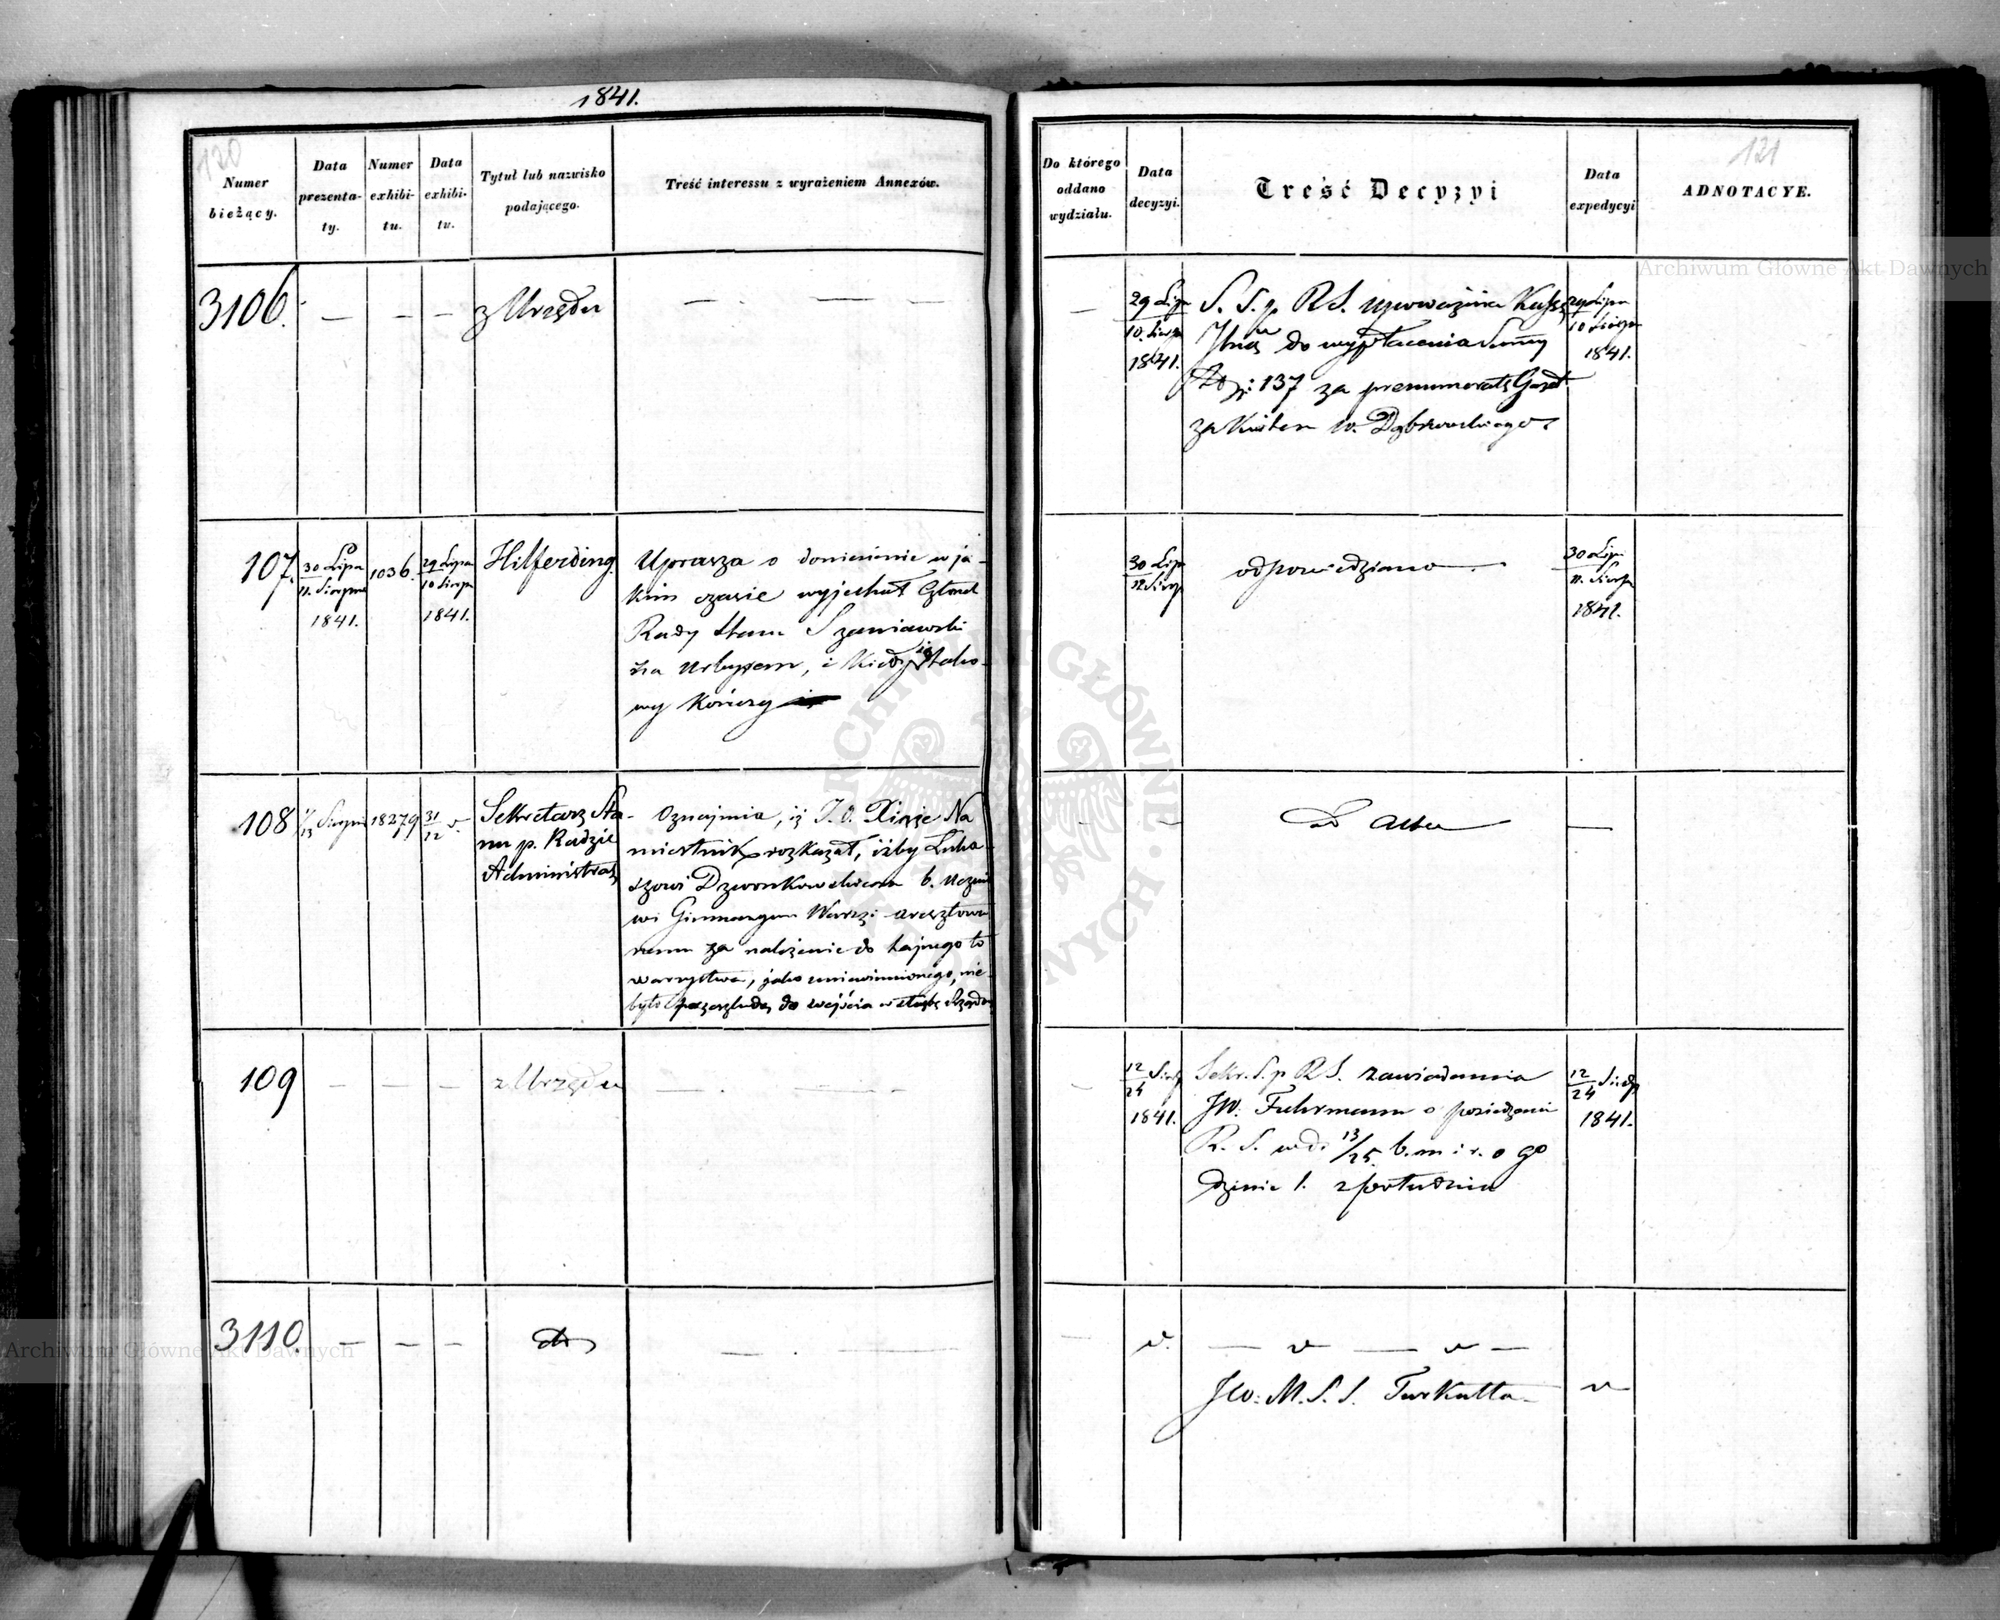 1841.
120
Numer
bieżący.
Data
prezenta-
ty.
Numer
exhibi-
tu.
Data
exhibi-
tu.
Tytuł lub nazwisko
podającego.
Treść interessu z wyrażeniem Annexów.
3106.
— — — z Urzędu — . — —
107.
30 Lipca
11. Sierpnia
1841.
1036.
29 Lipca
10 Sierp
1841.
Hilferding.
Uprasza o doniesienie w ja-
kim czasie wyjechał Członek
Rady Stanu Szaniawski
za Urlopem, i kiedy
my kończy
108
1/13 Sierpnia
18279
31/12 v.
Sekretarz Sta-
nu p. Radzie
Administrac
Oznajmia, iż J. O. Xiąże Na
miestnik rozkazał, iżby Łuka-
szowi Dzwonkowskiemu b. Ucznio
wi Gimnazyum Warsz: aresztowa
nemu za należenie do tajnego to
warzystwa, jako uniewinnionego, nie
było przeszkodą do wejścia w służbę Rządową
109
— — — z Urzędu — . — —
3110.
— — — dto — . — —
121
Do którego
oddano
wydziału.
Data
decyzyi.
Treść Decyzyi
Data
expedycyi
ADNOTACYE.
29 Lipc
10. Sierp
1841.
S. S. p. R S. upoważnia Kassę
do wypłacenia Summy
137 za prenumeratę Gazet
za kwitem W. Dąbrowskiego
29 Lipca
10 Sierpn
1841.
30 Lip
12 Sierp
odpowiedziano
30 Lip
11. Sierp
1841.
ad acta
12/24 Sierp
1841.
Sekr. S. p R S. zawiadamia
JW. Fuhrmann o posiedzeniu
R. S. w d. 13/25. b. m i r. o go
dzinie 1. z południa
12/24 Sierp
1841.
v. — v — v —
JW. M. S. S. Turkułła
v
Archiwum Główne Akt Dawnych
Archiwum Główne Akt Dawnych
ARCHIWUM GŁÓWNE AKT DAWNYCH